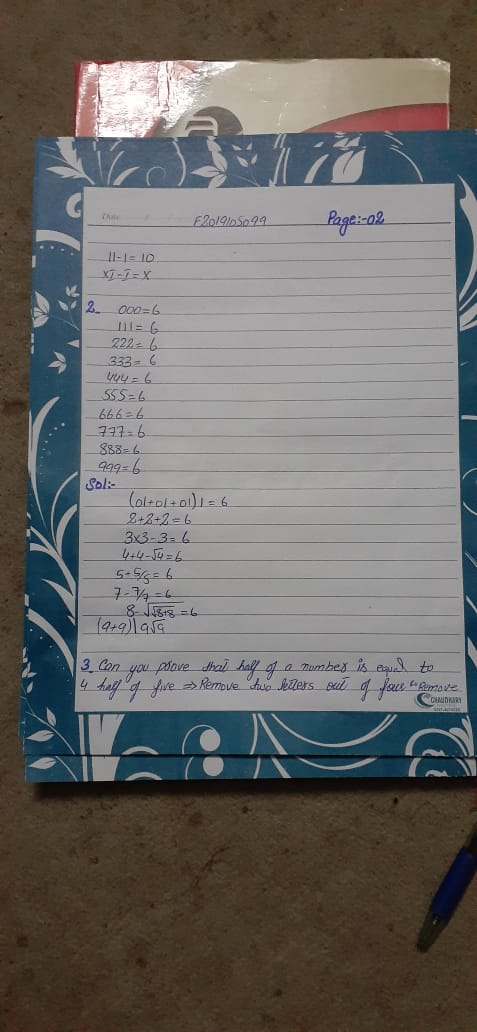 Date
F2019105099
Page:-02
11-1=10
XI-I=X
2- 000=6
111=6
222=6
333=6
444=6
555=6
666=6
777=6
888=6
999=6
Sol:-
(01+01+01)1=6
2+2+2=6
3x3-3=6
4+4-√4=6
5+5/5=6
7-7/7=6
8-√√8+8=6
(9+9)/9√9
3 Can you prove that half of a number is equal to
4 half of five ⇒ Remove two letters out of four Remove
CHAUDHARY